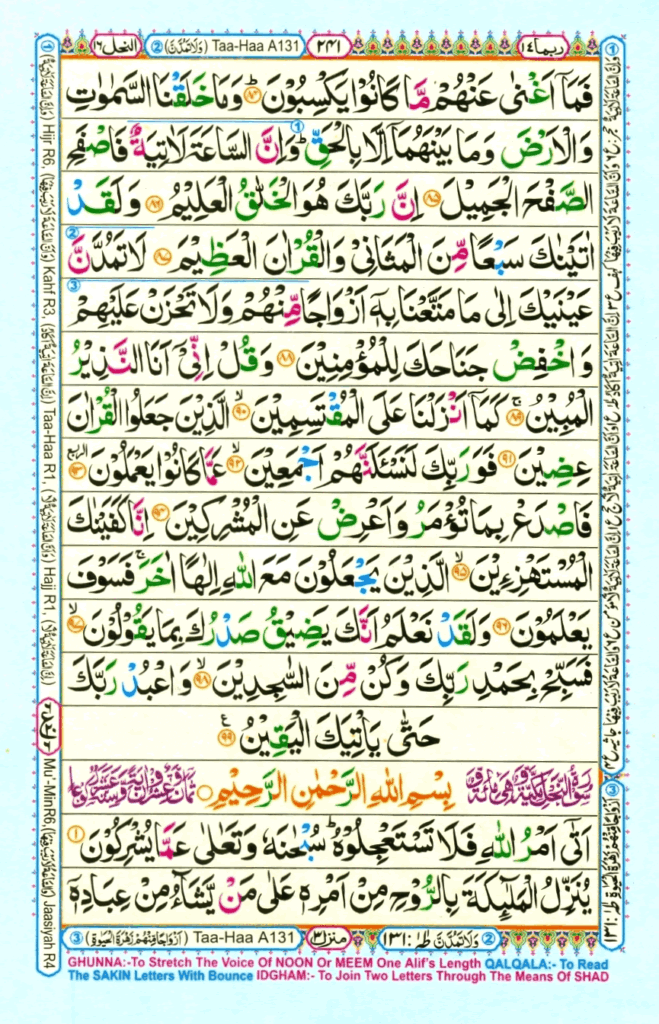 النحل ١٦
② (وَلَا تَمُدَّنَّ) Taa-Haa A131
٢٤١
ربما ١٤
فَمَاۤ اَغْنٰى عَنْهُمْ مَّا كَانُوْا يَكْسِبُوْنَ ؕ﴿۸۴﴾ وَمَا خَلَقْنَا السَّمٰوٰتِ
وَالْاَرْضَ وَمَا بَيْنَهُمَاۤ اِلَّا بِالْحَقِّ ؕ وَاِنَّ السَّاعَةَ لَاٰتِيَةٌ فَاصْفَحِ
الصَّفْحَ الْجَمِيْلَ ﴿۸۵﴾ اِنَّ رَبَّكَ هُوَ الْخَلّٰقُ الْعَلِيْمُ ﴿۸۶﴾ وَلَقَدْ
اٰتَيْنٰكَ سَبْعًا مِّنَ الْمَثَانِيْ وَالْقُرْاٰنَ الْعَظِيْمَ ﴿۸۷﴾ لَا تَمُدَّنَّ
عَيْنَيْكَ اِلٰى مَا مَتَّعْنَا بِهٖۤ اَزْوَاجًا مِّنْهُمْ وَلَا تَحْزَنْ عَلَيْهِمْ
وَاخْفِضْ جَنَاحَكَ لِلْمُؤْمِنِيْنَ ﴿۸۸﴾ وَقُلْ اِنِّيْۤ اَنَا النَّذِيْرُ
الْمُبِيْنُ ۚ﴿۸۹﴾ كَمَاۤ اَنْزَلْنَا عَلَى الْمُقْتَسِمِيْنَ ۙ﴿۹۰﴾ الَّذِيْنَ جَعَلُوا الْقُرْاٰنَ
عِضِيْنَ ﴿۹۱﴾ فَوَرَبِّكَ لَنَسْـَٔلَنَّهُمْ اَجْمَعِيْنَ ۙ﴿۹۲﴾ عَمَّا كَانُوْا يَعْمَلُوْنَ ﴿۹۳﴾ الربع
فَاصْدَعْ بِمَا تُؤْمَرُ وَاَعْرِضْ عَنِ الْمُشْرِكِيْنَ ﴿۹۴﴾ اِنَّا كَفَيْنٰكَ
الْمُسْتَهْزِءِيْنَ ۙ﴿۹۵﴾ الَّذِيْنَ يَجْعَلُوْنَ مَعَ اللّٰهِ اِلٰهًا اٰخَرَ ۚ فَسَوْفَ
يَعْلَمُوْنَ ﴿۹۶﴾ وَلَقَدْ نَعْلَمُ اَنَّكَ يَضِيْقُ صَدْرُكَ بِمَا يَقُوْلُوْنَ ۙ﴿۹۷﴾
فَسَبِّحْ بِحَمْدِ رَبِّكَ وَكُنْ مِّنَ السّٰجِدِيْنَ ۙ﴿۹۸﴾ وَاعْبُدْ رَبَّكَ
حَتّٰى يَاْتِيَكَ الْيَقِيْنُ ﴿۹۹﴾
بِسْمِ اللّٰهِ الرَّحْمٰنِ الرَّحِيْمِ
اَتٰۤى اَمْرُ اللّٰهِ فَلَا تَسْتَعْجِلُوْهُ ؕ سُبْحٰنَهٗ وَتَعٰلٰى عَمَّا يُشْرِكُوْنَ ﴿۱﴾
يُنَزِّلُ الْمَلٰٓئِكَةَ بِالرُّوْحِ مِنْ اَمْرِهٖ عَلٰى مَنْ يَّشَآءُ مِنْ عِبَادِهٖۤ
③ (اَزْوَاجًا مِّنْهُمْ زَهْرَةَ الْحَيٰوةِ) Taa-Haa A131
منزل ٣
② وَلَا تَمُدَّنَّ طٰهٰ : ١٣١
GHUNNA:-To Stretch The Voice Of NOON Or MEEM One Alif's Length QALQALA:- To Read
The SAKIN Letters With Bounce IDGHAM:- To Join Two Letters Through The Means Of SHAD